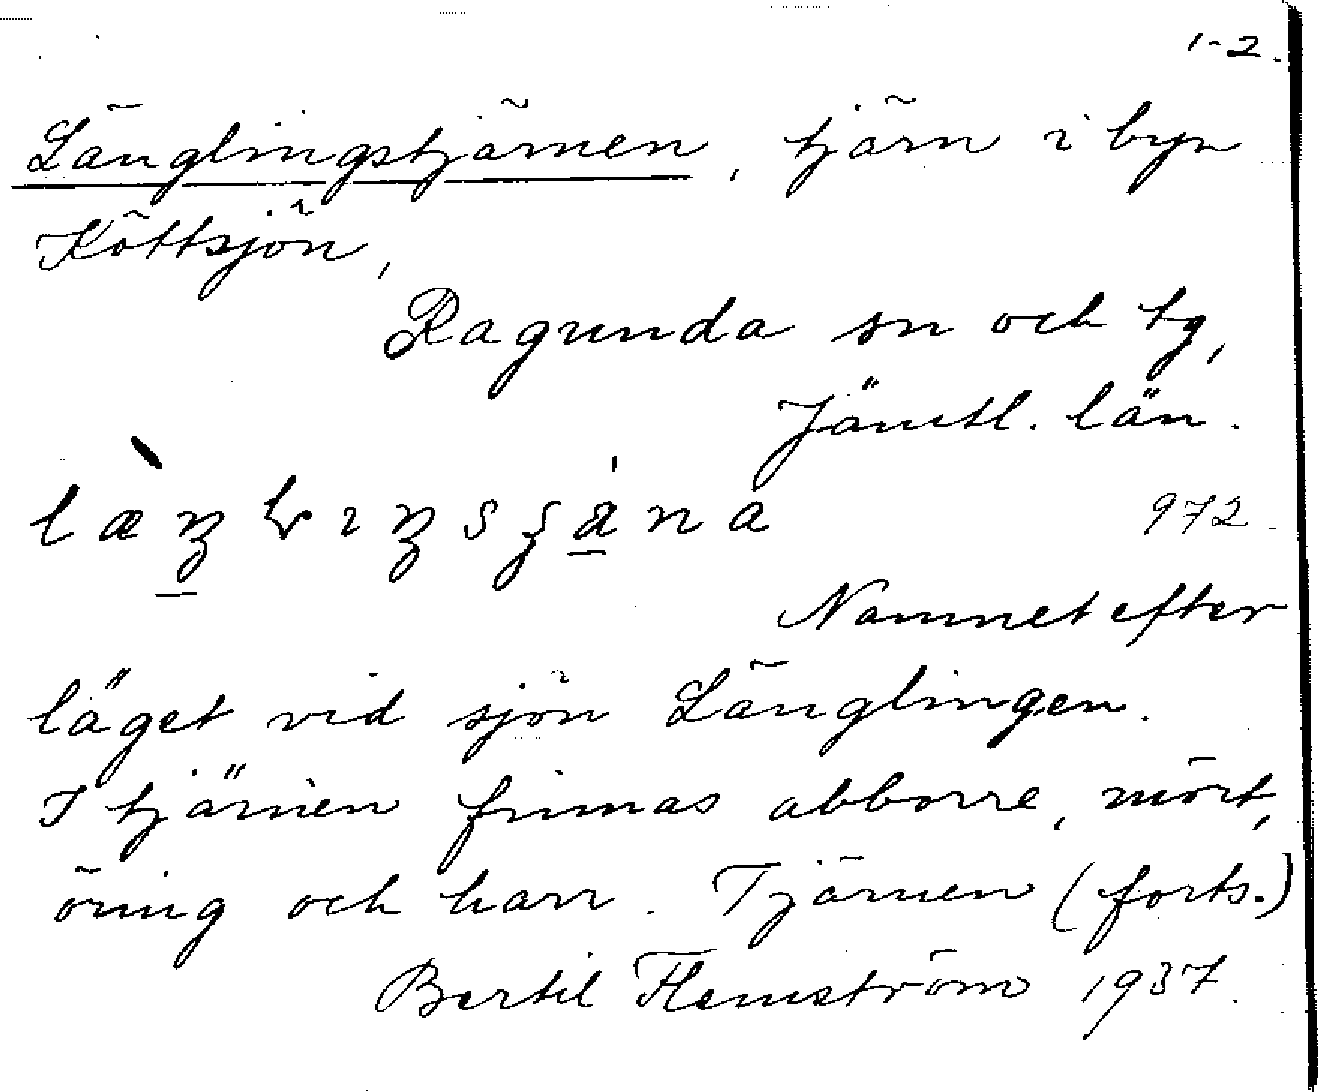 1-2.
Länglingstjärnen, tjärn i byn
Köttsjön,
Ragunda sn och tg,
Jämtl. län.
972
Namnet efter
läget vid sjön Länglingen.
I tjärnen finnas abborre, mört,
öring och harr. Tjärnen (forts.)
Bertil Flemström 1937.